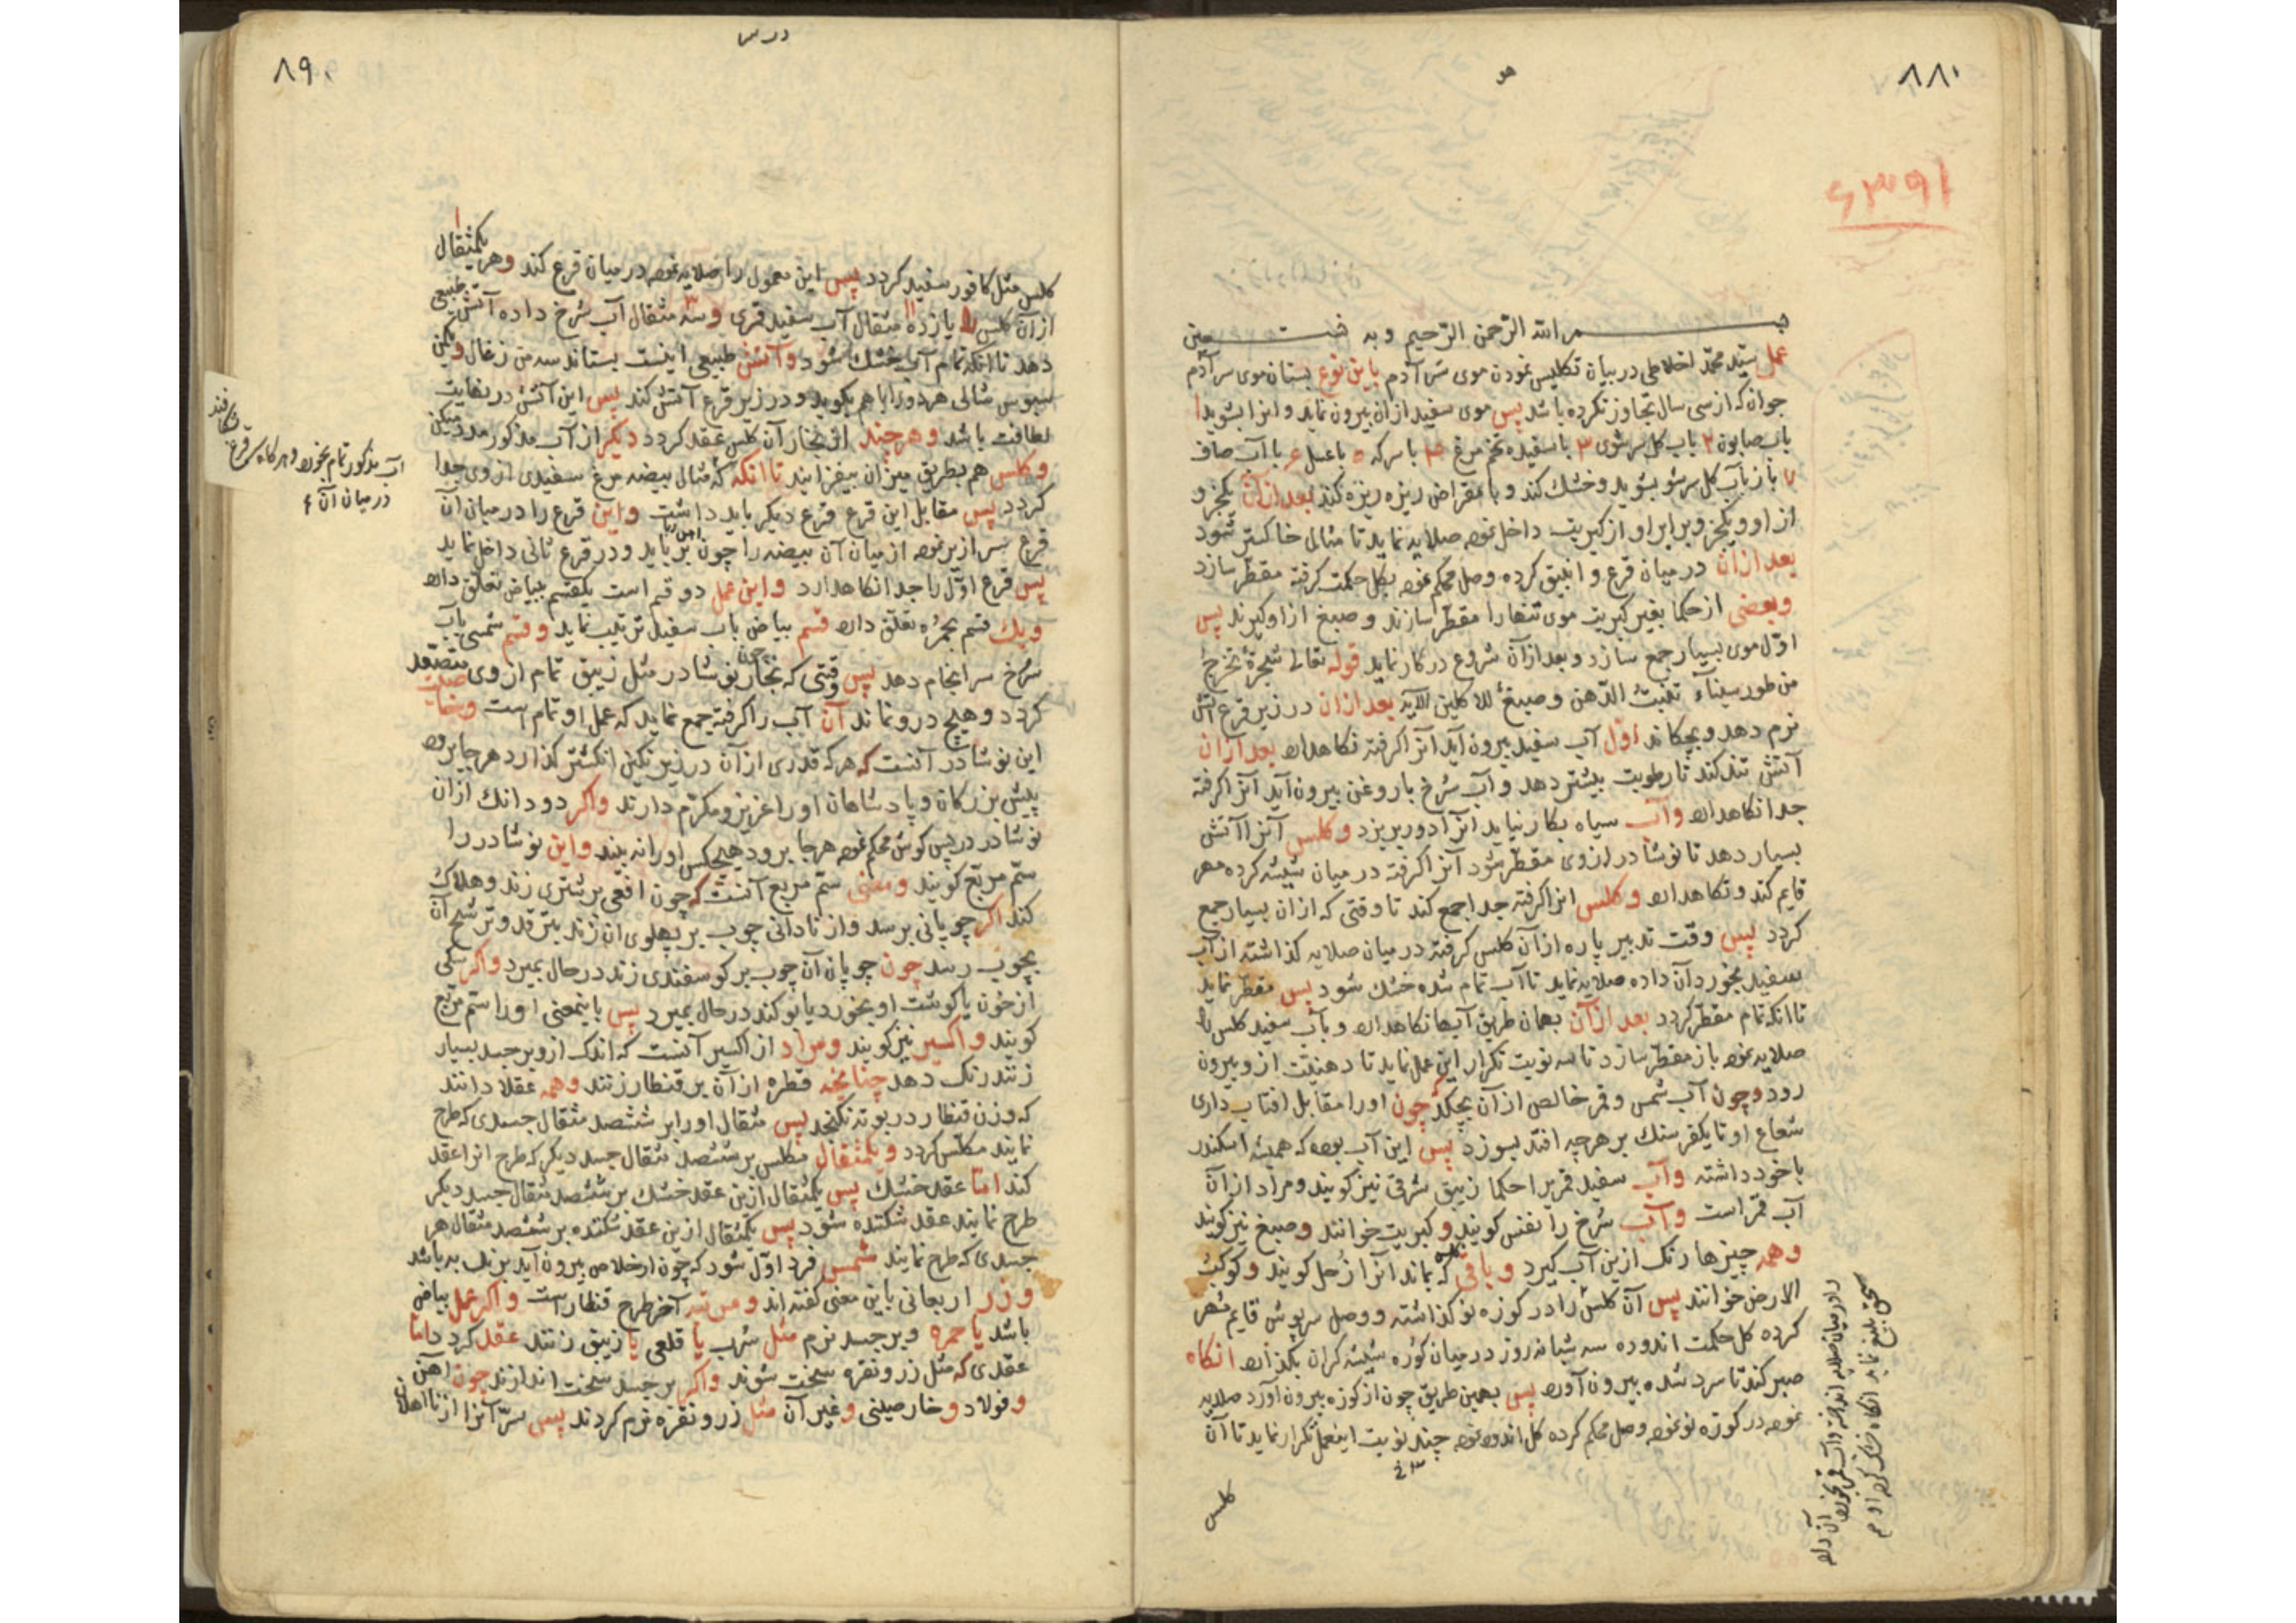 ۸۸۰
۶۳۹۱
بسم الله الرّحمن الرّحیم و به نستعین
عمل سیّد محمّد اخلاطی در بیان تکلیس نمودن موی سَرِ آدم باین نوع بستان موی سر آدم
جوان که از سی سال تجاوز نکرده باشد پس موی سفید از ان بیرون نماید و انرا بشوید ۱
باب صابون ۲ باب کل سرشوی ۳ با سفیده تخم مرغ ۴ با سرکه ۵ با عسل ۶ با آب صاف
۷ باز باب کل سرشو بشوید و خشك کند و با مقراض ریزه ریزه کند بعد از آن یکجزو
از او و یکجزو برابر او از کبریت داخل نموده صلایه نماید تا مثال خاکستر شود
بعد از ان در میان قرع و انبیق کرده وصل محکم نموده بکل حکمت کرفته مقطّر سازد
وبعضی از حکما بغیر کبریت موی تنها را مقطّر سازند و صبغ از او کیرند پس
اوّل موی بسیار جمع سازد و بعد از آن شروع در کار نماید قوله تعالی شجرة تخرج
من طور سیناء تنبت الدّهن و صبغ للاکلین الآیه بعد از ان در زیر قرع آتش
نرم دهد و بچکاند اوّل آب سفید بیرون آید آنرا کرفته نکاهدارد بعد از ان
آتش تند کند تا رطوبت بیشتر دهد و آب سُرخ با روغن بیرون آید آنرا کرفته
جدا نکاهدارد وآب سیاه بکار نیاید آنرا دور بریزد وکلس آنرا آتش
بسیار دهد تا نوشادر از وی مقطّر شود آنرا کرفته در میان شیشه کرده مهر
قایم کند و نکاهدارد وکلس انرا کرفته جدا جمع کند تا وقتی که از ان بسیار جمع
کردد پس وقت تدبیر پاره از آن کلس کرفته در میان صلایه کذاشته از آب
سفید بخورد آن داده صلایه نماید تا آب تمام شده خشك شود پس مقطّر نماید
تا انکه تمام مقطّر کردد بعد از آن بهمان طریق آبها نکاهدارد و باب سفید کلس را
صلایه نموده باز مقطّر سازد تا سه نوبت تکرار این عمل نماید تا دهنیّت از و بیرون
رود و چون آب شمس و قمر خالص از آن بچکد چون او را مقابل افتاب داری
شعاع او تا یکفرسنك بر هر چه افتد بسوزد پس این آب بوده که همیشه اسکندر
با خود داشته وآب سفید قمریرا حکما زیبق شرقی نیز کویند و مراد از آن
آب قمر است وآب سُرخ را نفس کویند و کبریت خوانند و صبغ نیز کویند
وهمه چیزها رنك ازین آب کیرد وباقی که بماند آنرا زُحل کویند و کوکب
الارض خوانند پس آن کلس را در کوزه نو کذاشته و وصل سرپوش قایم مُهر
کرده کل حکمت اندوده سه شبانه روز در میان کوره شیشه کران بکذارد انکاه
صبر کند تا سرد شده بیرون آورد پس بهمین طریق چون از کوزه بیرون آورد صلایه
نموده در کوزه نو نموده وصل محکم کرده کل اندوده نموده چند نوبت اینعمل تکرار نماید تا آن
کلس
۸۹۰
درس
یکمثقال
کلس مثل کافور سفید کردد پس این معمول را صلایه نموده در میان قرع کند وهر
از آن کلس را یازده مثقال آب سفید قمری و سه مثقال آب سُرخ داده آتش طبیعی
دهد تا انکه تمام آب خشك شود وآتش طبیعی اینست بستاند سه من زغال و یکمن
سبوس شالی هر دو را با هم بکوبد و در زیر قرع آتش کند پس این آتش در نهایت
لطافت باشد وهرچند از بخار آن کلس عقد کردد دیکر از آب مذکور مدد میکن
وکلس هم بطریق میزان بیفزایند تا انکه که مثال بیضه مرغ سفیدی از وی جدا
کردد پس مقابل این قرع قرع دیکر باید داشت واین قرع را در میان آن
قرع سر ازیر نموده از میان آن بیضه را چون برباید و در قرع ثانی داخل نماید
پس قرع اوّل را جدا نکاهدارد واین عمل دو قسم است یکقسم ببیاض تعلّق دارد
ویك قسم بحمره تعلّق دارد قسم بیاض باب سفید ترتیب نماید وقسم شمسی باب
سُرخ سرانجام دهد پس وقتی که بخار نوشادر مثل زیبق تمام از وی متصّعد
کردد و هیچ درو نماند آن آب را کرفته جمع نماید که عمل او تمام است وخاصیت
این نوشادر آنست که هر که قدری از آن در زیر نکین انکشتر کذارد هر جا برود
پیش بزرکان و پادشاهان او را عزیز و مکرّم دارند واکر دو دانك از ان
نوشادر در پس کوش محکم نموده هر جا برود هیچکس او را نه بیند واین نوشادر را
ستم مربّع کویند ومعنی ستم مربع آنست که چون افعی بر شتری زند و هلاك
کند اکر چوپانی برسد و از نادانی چوب بر پهلوی ان زند بترقد و ترشح آن
بچوب رسد چون چوپان آن چوب بر کوسفندی زند در حال بمیرد واکر سکی
از خون یا کوشت او بخورد یا بو کند در حال بمیرد پس باینمعنی او را ستم مربّع
کویند واکسیر نیز کویند ومراد از اکسیر آنست که اندك از و بر جسد بسیار
زنند رنك دهد چنانچه قطره از آن بر قنطار زنند وهمه عقلا دانند
که وزن قنطار در بوته نکنجد پس مثقال او را بر ششصد مثقال جسدی که طرح
نمایند مکلّس کردد ویکمثقال مکلس بر ششصد مثقال جسد دیکر که طرح انرا عقد
کند امّا عقد خشك پس یکمثقال ازین عقد خشك بر ششصد مثقال جسد دیکر
طرح نمایند عقد شکننده شود پس یکمثقال ازین عقد شکننده بر ششصد مثقال هر
جسدی که طرح نمایند شمس فرد اوّل شود که چون از خلاص بیرون آید
وزر اربعانی باین معنی کفته اند ومرتبه آخر طرح قنطار است واکر عمل بیاض
باشد یا حمره وبر جسد نرم مثل سُرب یا قلعی یا زیبق زنند عقد کردد امّا
عقدی که مثل زر و نقره سخت شوند واکر بر جسد سخت اندازند چون آهن
و فولاد و خارصینی وغیر آن مثل زر و نقره نرم کردند پس سرّ آنرا از نااهلان
آب مذکور تمام بخورد
در میان آن